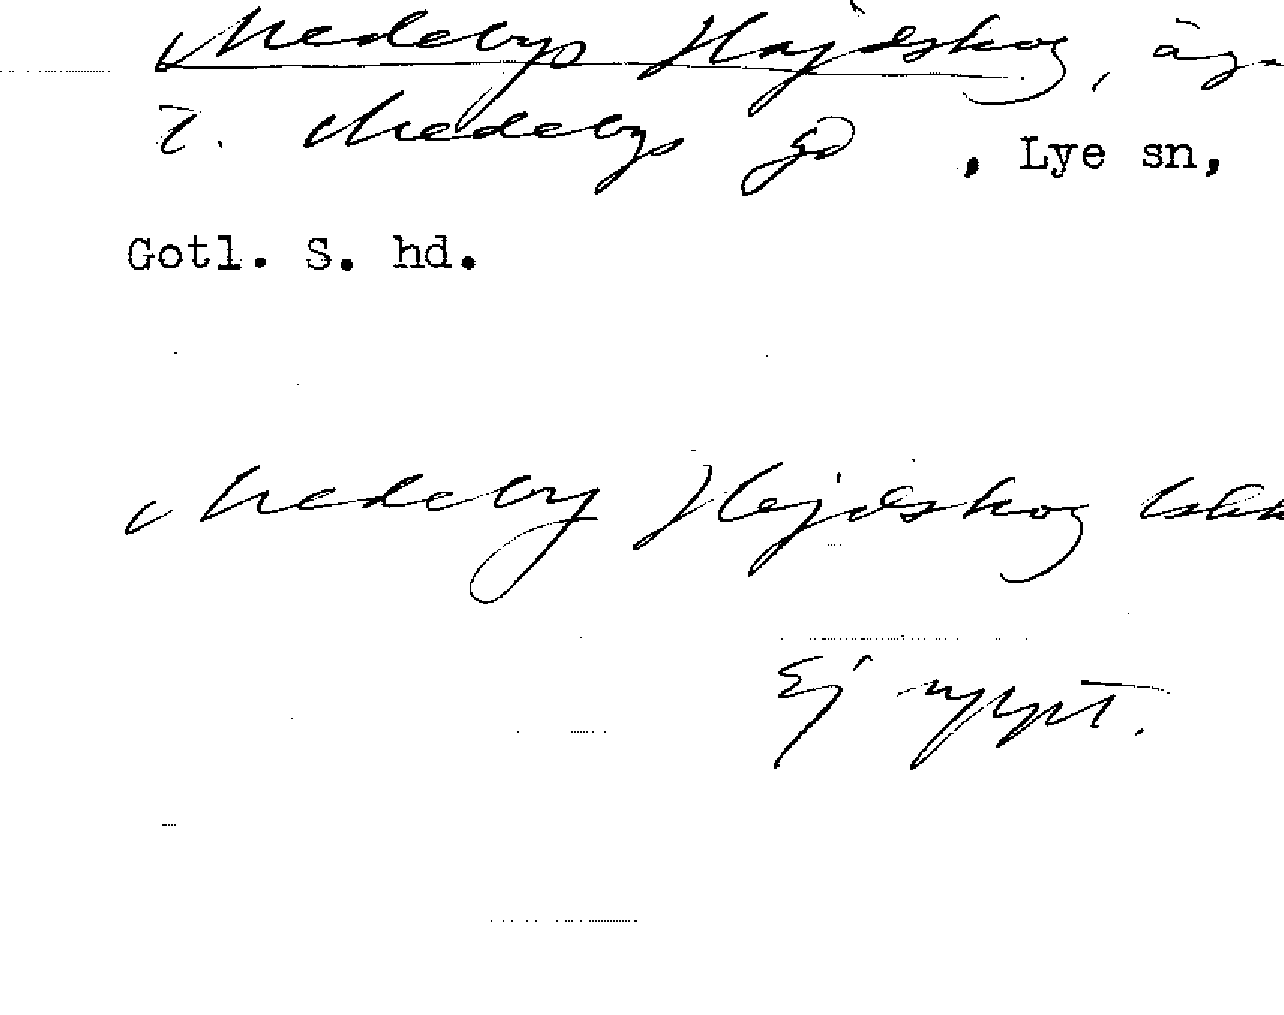 Medebys Hajdskog, äga
t. Medebys gd , Lye sn,
Gotl. S. hd.
Medeby Hejdskog
Ej uppt.